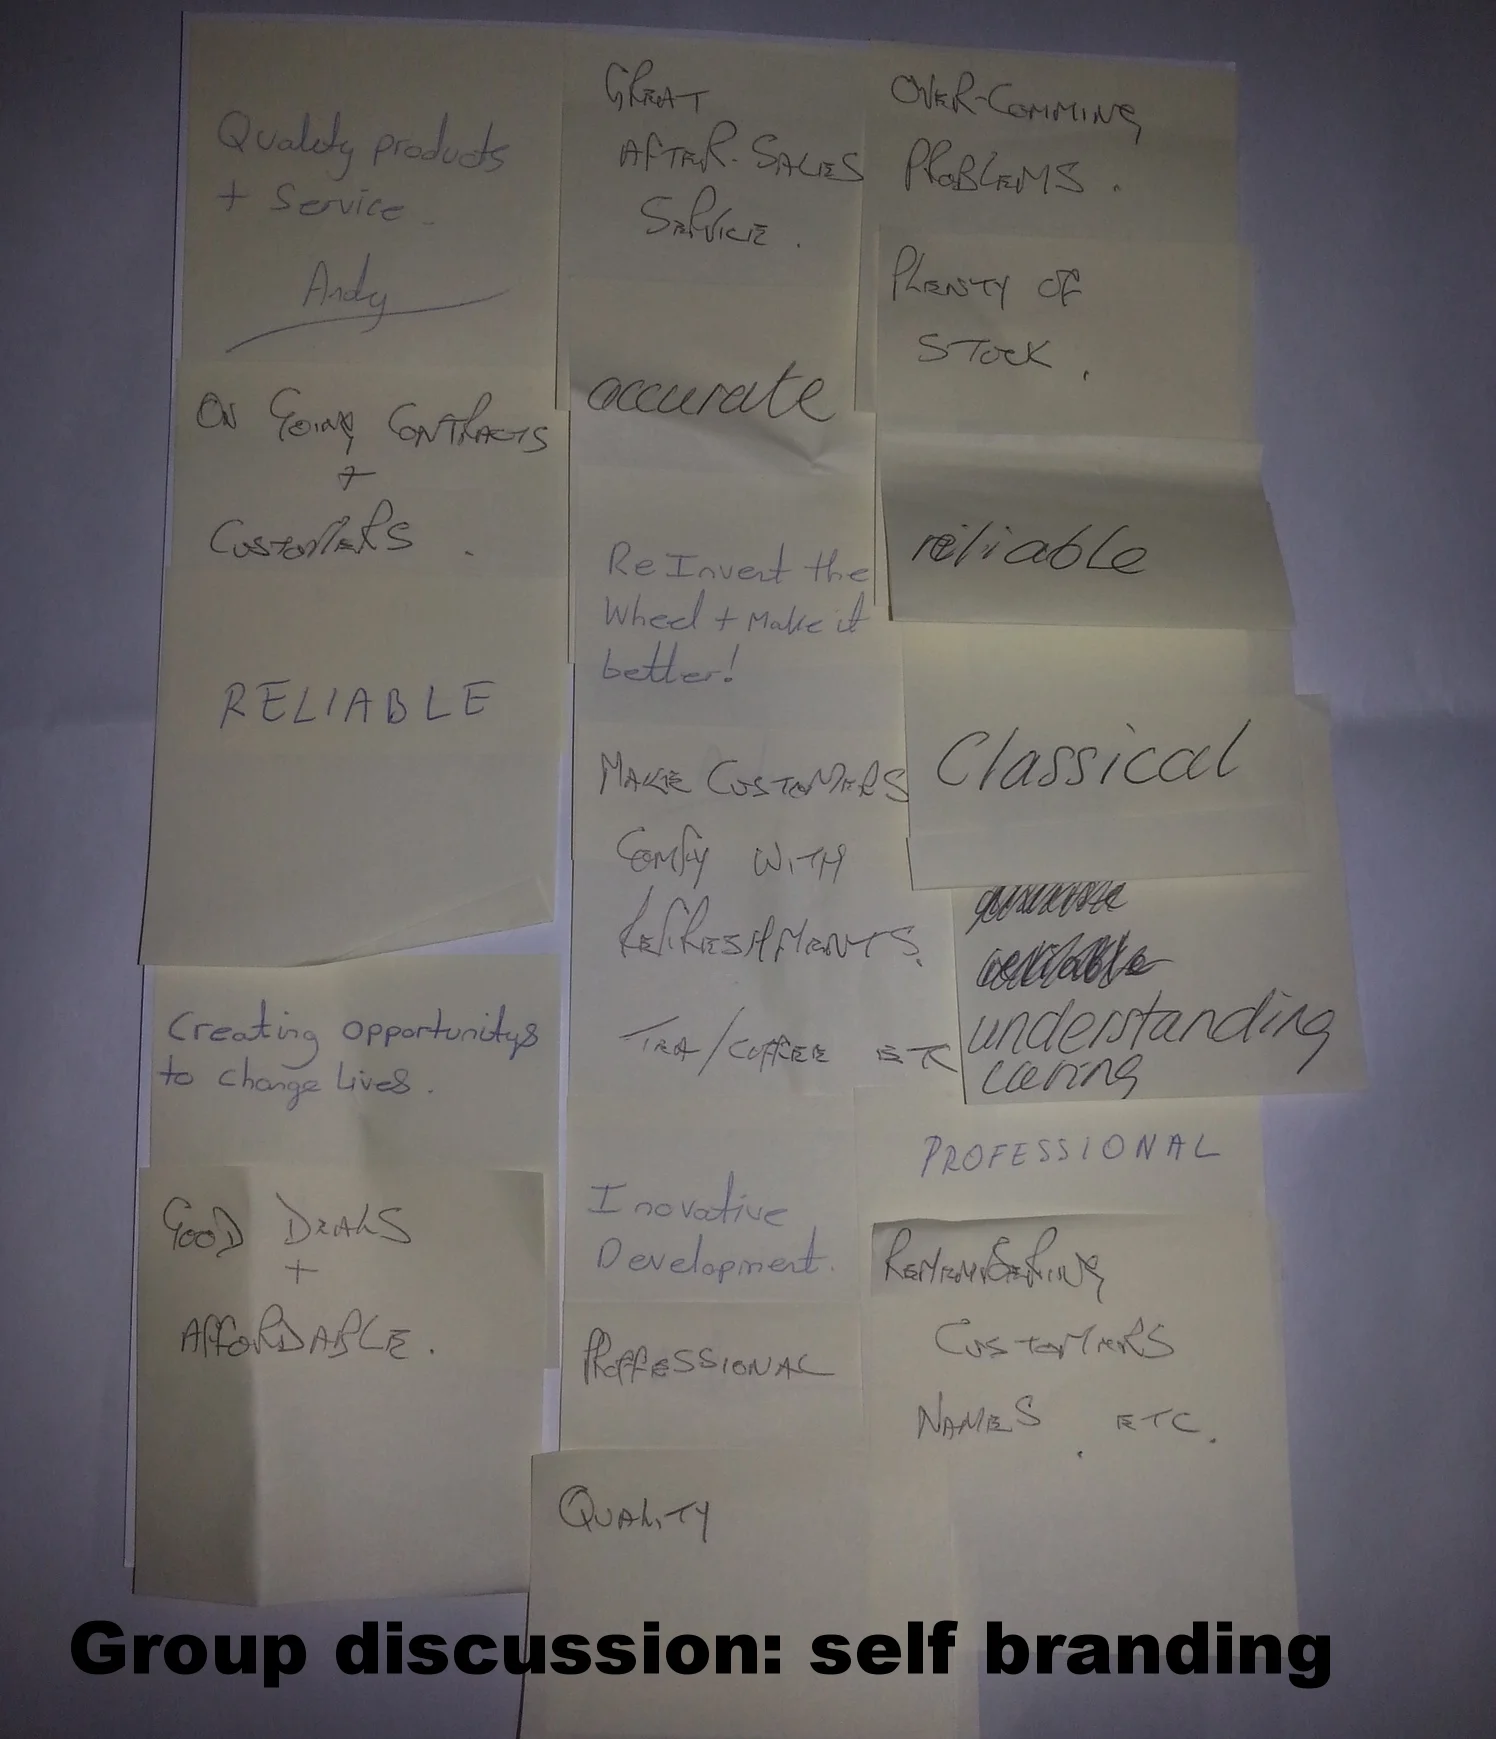 Quality products
+ Service.
Andy
ON GOING CONTRACTS
+
CUSTOMERS.
RELIABLE
Creating opportunitys
to change Lives.
GOOD DEALS
+
AFFORDABLE.
GREAT
AFTER-SALES
SERVICE.
accurate
Re Invent the
Wheel + Make it
better!
MAKE CUSTOMERS
COMFY WITH
REFRESHMENTS.
TEA/COFFEE ETC
Inovative
Development.
PROFFESSIONAL
QUALITY
OVER-COMMING
PROBLEMS.
PLENTY OF
STOCK.
reliable
Classical
understanding
caring
PROFESSIONAL
REMEMBERING
CUSTOMERS
NAMES. ETC.
Group discussion: self branding